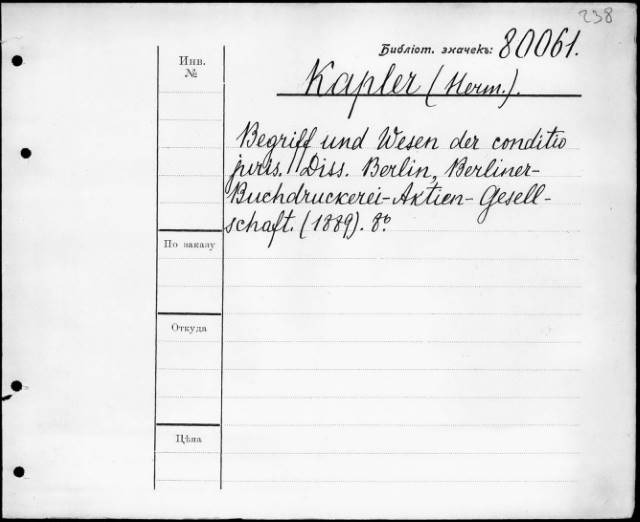 238
Библіот. значекъ: 80061.
Инв.
№
Kapler (Herm.).
Begriff und Wesen der conditio
juris. Diss. Berlin, Berliner-
Buchdruckerei-Aktien-Gesell-
schaft. (1889). 8º.
По заказу
Откуда
Цѣна